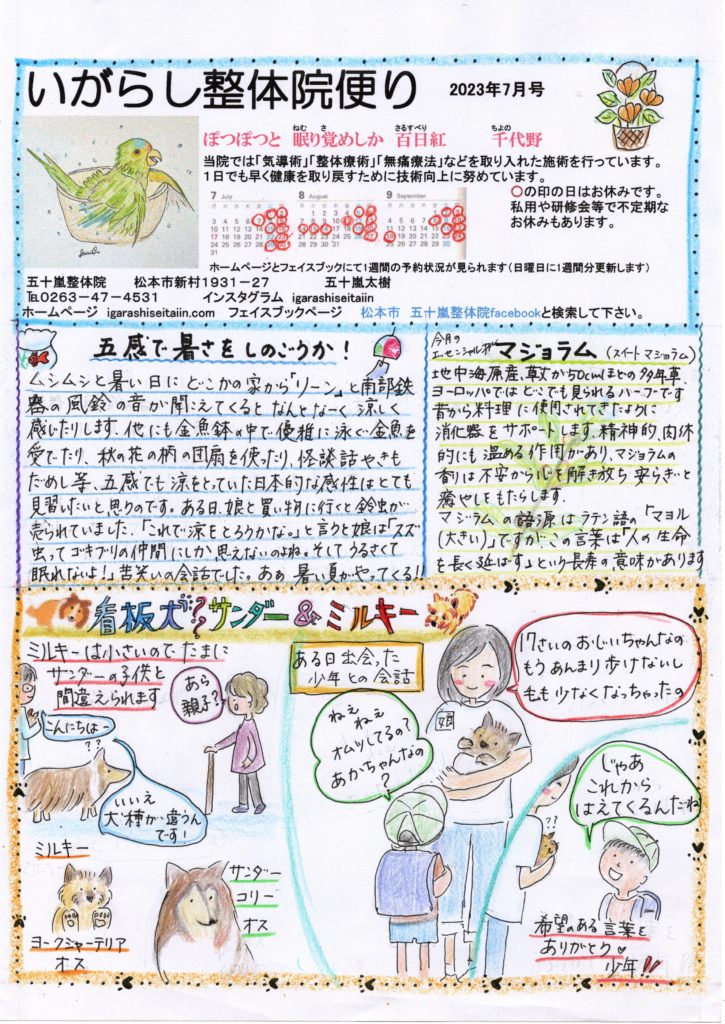 いがらし整体院便り 2023年7月号
ぽつぽつと 眠り覚めしか 百日紅 千代野
ねむ さ さるすべり ちよの
当院では「気導術」「整体療術」「無痛療法」などを取り入れた施術を行っています。
1日でも早く健康を取り戻すために技術向上に努めています。
7 July
8 August
9 September
○の印の日はお休みです。
私用や研修会等で不定期な
お休みもあります。
ホームページとフェイスブックにて1週間の予約状況が見られます(日曜日に1週間分更新します)
五十嵐整体院 松本市新村1931-27 五十嵐太樹
℡0263-47-4531 インスタグラム igarashiseitaiin
ホームページ igarashiseitaiin.com フェイスブックページ 松本市 五十嵐整体院facebookと検索して下さい。
五感で暑さをしのごうか!
ムシムシと暑い日にどこかの家から「リーン」と南部鉄
器の風鈴の音が聞こえてくるとなんとなーく涼しく
感じたりします。他にも金魚鉢の中で優雅に泳ぐ金魚を
愛でたり、秋の花の柄の団扇を使ったり、怪談話やきも
だめし等、五感でも涼をとっていた日本的な感性はとても
見習いたいと思うのです。ある日、娘と買い物に行くと鈴虫が
売られていました。「これで涼をとろうかな。」と言うと娘は「スズ
虫ってゴキブリの仲間にしか思えないのよね。そしてうるさくて
眠れないよ!」苦笑いの会話でした。あぁ、暑い夏がやってくる!!
今月の
エッセンシャルオイル マジョラム (スイートマジョラム)
地中海原産、草丈が50cmほどの多年草。
ヨーロッパではどこでも見られるハーブです
昔から料理に使用されてきたように
消化器をサポートします。精神的、肉体
的にも温める作用があり、マジョラムの
香りは不安から心を解き放ち安らぎと
癒やしをもたらします。
マジョラムの語源はラテン語の「マヨル
(大きい)」ですが、この言葉は「人の生命
を長く延ばす」という長寿の意味があります
看板犬?サンダー&ミルキー
ミルキーは小さいのでたまに
サンダーの子供と
間違えられます
あら
親子?
こんにちはー
??
いいえ
犬種が違うん
です!
ミルキー
ヨークシャーテリア
オス
サンダー
コリー
オス
ある日出会った
少年との会話
ねぇ
ねぇ
オムツしてるの?
あかちゃんなの
?
娘
17さいのおじいちゃんなの
もうあんまり歩けないし
毛も少なくなっちゃったの
??
じゃあ
これから
はえてくるんだね
希望のある言葉を
ありがとう
少年!!